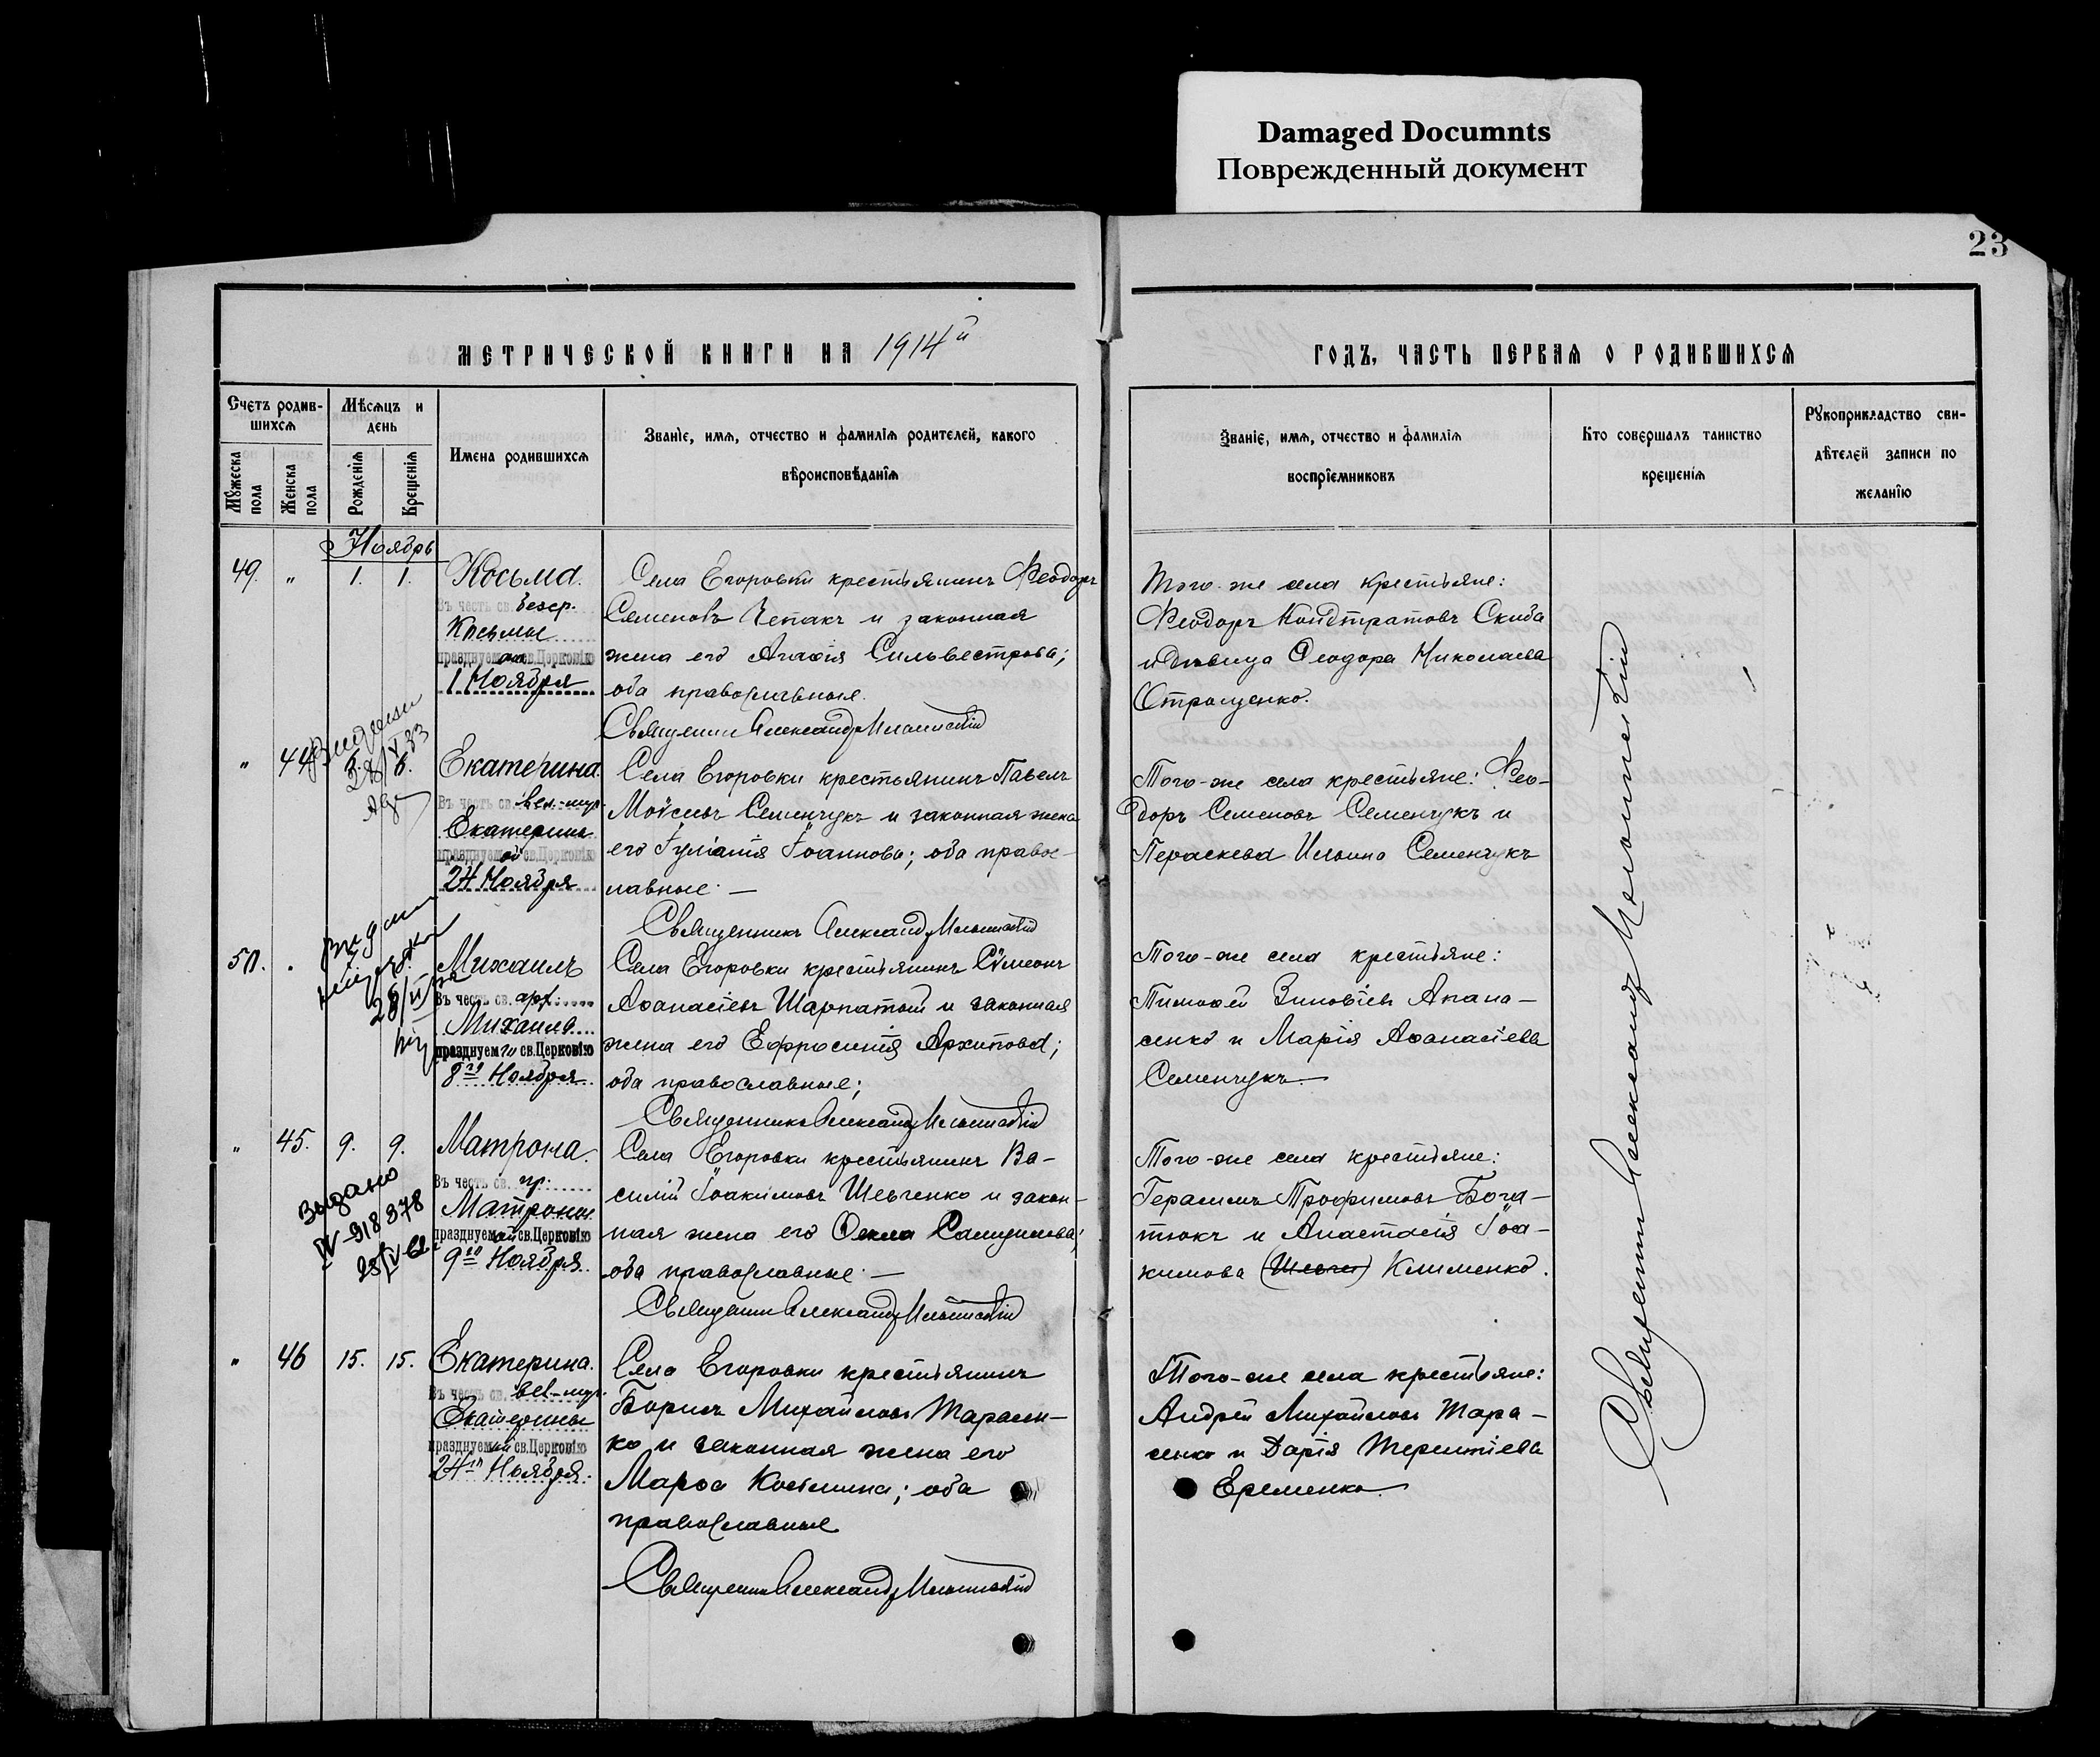 Damaged Documnts
Поврежденный документ
23
МЕТРИЧЕСКОЙ КНИГИ НА 1914й
ГОДЪ, ЧАСТЬ ПЕРВАЯ О РОДИВШИХСЯ
Счетъ родив-
шихся
Мѣсяцъ и
день
Мужеска
пола
Женска
пола
Рожденія
Крещенія
Имена родившихся
Званіе, имя, отчество и фамилія родителей, какого
вѣроисповѣданія
Званіе, имя, отчество и фамилія
воспріемниковъ
Кто совершалъ таинство
крещенія
Рукоприкладство сви-
дѣтелей записи по
желанію
Ноябрь
49. " 1. 1.
Косьма.
Въ честь св. безср.
Косьмы
празднуем св.Церковію
1 Ноября
Села Егоровки крестьянинъ Феодоръ
Семеновъ Чепакъ и законная
жена его Агаѳія Сильвестрова;
оба православные.
Священникъ Александр
Того-же села крестьяне:
Феодоръ Кондтратовъ Скиба
и дѣвица Ѳеодора Николаева
Остращенко.
" 44
Екатерина.
Въ честь св. вел.-муч.
Екатерины
празднуемой св.Церковію
24 Ноября
Села Егоровки крестьянинъ Павелъ
Моѵсеевъ Семенчукъ и законная жена
его Іуліанія Іоаннова; оба правос-
лавные. —
Священникъ Александр
Того-же села крестьяне: Фео-
доръ Семеновъ Семенчукъ и
Параскева Ильина Семенчукъ
50. "
Михаилъ
Въ честь св. арх.
Михаила
празднуемаго св.Церковію
8го Ноября
Села Егоровки крестьянинъ Сѵмеонъ
Аѳанасіевъ Шарпатый и законная
жена его Ефросинія Архипова;
оба православные;
Священникъ Александр
Того-же села крестьяне:
Тимоѳей Зиновіевъ Апана-
сенко и Марія Аѳанасіева
Семенчукъ—
" 45. 9. 9.
Выдано
IV-918378
Матрона.
Въ честь св. пр.
Матроны
празднуемой св.Церковію
9го Ноября
Села Егоровки крестьянинъ Ва-
силій Іоакимовъ Шевченко и закон-
ная жена его Ѳекла
оба православные —
Священникъ Александр
Того-же села крестьяне:
Герасимъ Трофимовъ Бога-
тюкъ и Анастасія Іоа-
кимова (Шевчен) Клименко.
" 46 15. 15.
Екатерина.
Въ честь св. вел.-муч.
Екатерины
празднуемой св.Церковію
24го Ноября.
Села Егоровки крестьянинъ
Борисъ Михайловъ Тарасен-
ко и законная жена его
Марѳа Косьмина; оба
православные
Священникъ Александр
Того-же села крестьяне:
Андрей Михайловъ Тара-
сенко и Дарія Терентіева
Еременко.
Священникъ Александр